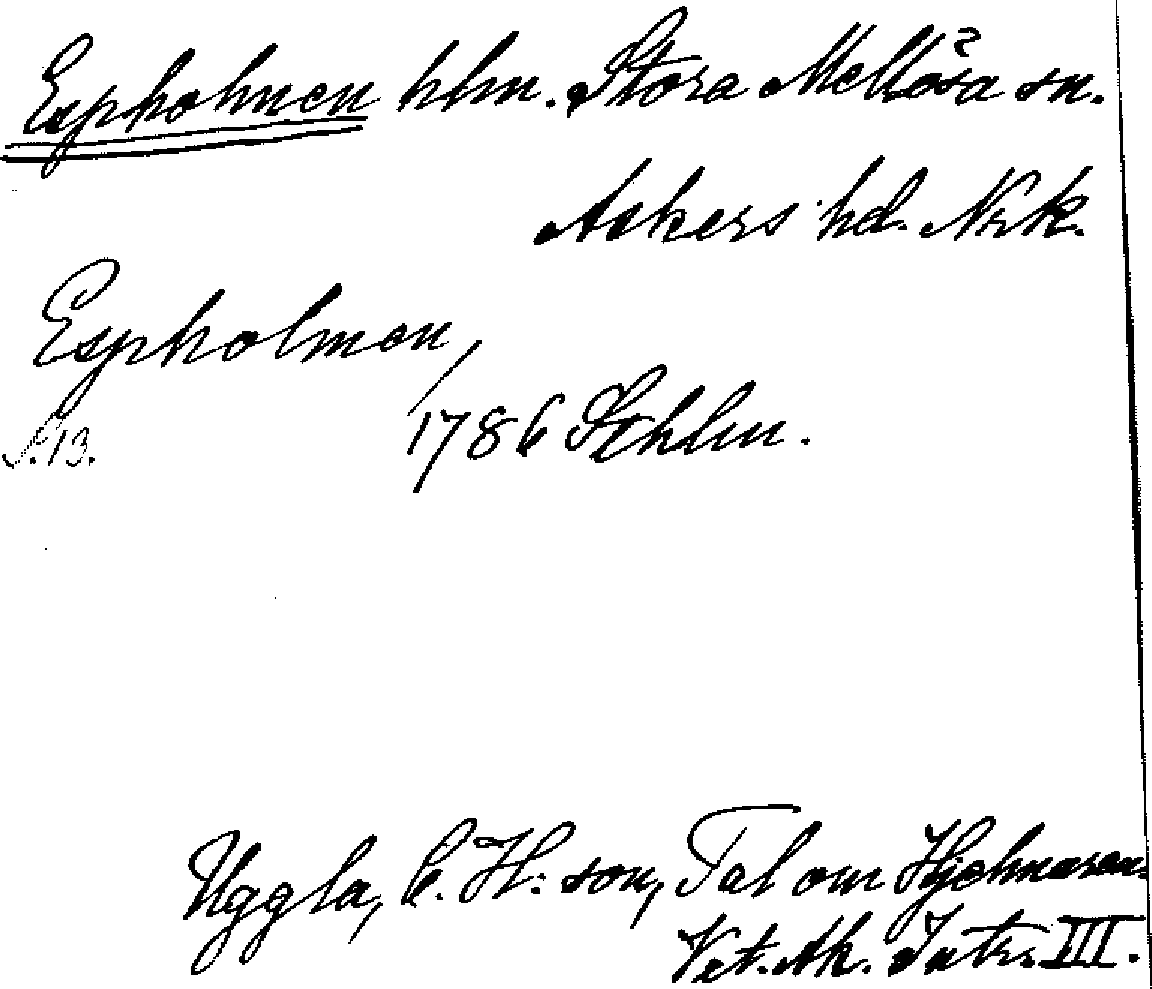 Espholmen hlm. Stora Mellösa sn.
Askers hd. Nrk.
Espholmen,
S. 13. 1786 Sthlm.
Uggla, C. H:son, Tal om Hjelmaren.
Vet. Ak. Intr. III.